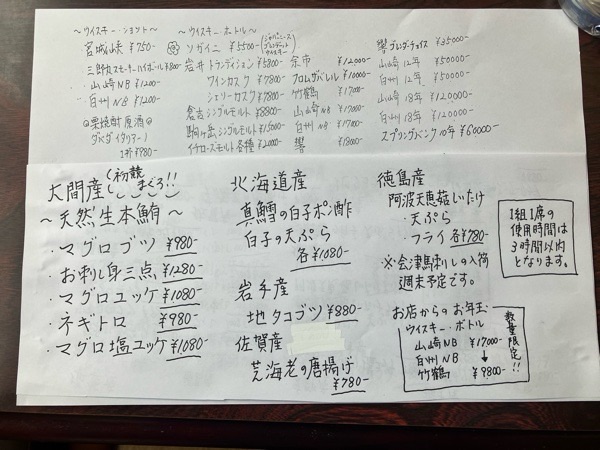 ～ウイスキー・ショット～
宮城峡 ¥750-
三郎丸スモーキーハイボール¥800-
・山崎NB ¥1200
・白州NB ¥1200
◎栗焼酎原酒◎
ダバダイタリアーノ
1杯¥980-
～ウイスキー・ボトル～
ソガイニ ¥5500-(ジャパニーズ ブレンデット ウイスキー)
岩井トラディション¥5800-
ワインカスク ¥7800-
シェリーカスク¥7800-
倉吉シングルモルト ¥8800-
駒ヶ岳シングルモルト¥15000-
イチローズモルト各種 ¥12000-
余市 ¥12,000-
フロムザバレル ¥10000-
竹鶴 ¥17000-
山崎NB ¥17000-
白州NB ¥17000-
響 ¥18000-
響ブレンダーチョイス ¥35000-
山崎 12年 ¥50000-
白州 12年 ¥50000-
山崎 18年 ¥120000-
白州 18年 ¥120000-
スプリングバンク 10年 ¥60000-
大間産(初競まぐろ!!)
～天然生本鮪～
・マグロブツ ¥980-
・お刺し身三点 ¥1280-
・マグロユッケ ¥1080-
・ネギトロ ¥980-
・マグロ塩ユッケ ¥1080-
北海道産
真鱈の白子ポン酢
白子の天ぷら
各¥1080-
岩手産
地タコブツ ¥880-
佐賀産
芝海老の唐揚げ
¥780-
徳島産
阿波天恵菇しいたけ
・天ぷら
・フライ 各¥780-
※会津馬刺しの入荷
週末予定です。
1組1席の
使用時間は
3時間以内
となります。
お店からのお年玉
ウイスキー・ボトル
山崎NB ¥17,000-
白州NB ↓
竹鶴 ¥9800-
数量限定!!